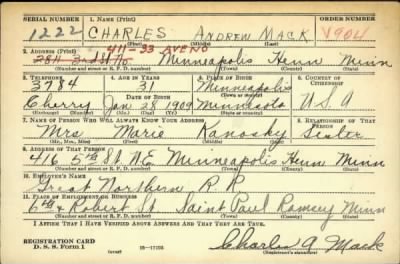 SERIAL NUMBER 1. NAME (Print) ORDER NUMBER
1222 CHARLES ANDREW MACK V904
411-33 AVE NO
2. ADDRESS (Print)
2811 3rd St No Minneapolis Henn Minn
(Number and street or R. F. D. number) (Town) (County) (State)
3. TELEPHONE 4. AGE IN YEARS 5. PLACE OF BIRTH 6. COUNTRY OF CITIZENSHIP
3784 31 Minneapolis
DATE OF BIRTH (Town or county)
Cherry Jan 28 1909 Minnesota U.S.A
(Exchange) (Number) (Mo.) (Day) (Yr.) (State or country)
7. NAME OF PERSON WHO WILL ALWAYS KNOW YOUR ADDRESS 8. RELATIONSHIP OF THAT PERSON
Mrs Marie Kanosky Sister
(Mr., Mrs., Miss) (First) (Middle) (Last)
9. ADDRESS OF THAT PERSON
416 5th St N.E. Minneapolis Henn Minn
(Number and street or R. F. D. number) (Town) (County) (State)
10. EMPLOYER'S NAME
Great Northern R R
11. PLACE OF EMPLOYMENT OR BUSINESS
6th & Robert St Saint Paul Ramsey Minn
(Number and street or R. F. D. number) (Town) (County) (State)
I AFFIRM THAT I HAVE VERIFIED ABOVE ANSWERS AND THAT THEY ARE TRUE.
REGISTRATION CARD
D. S. S. Form 1 Charles A Mack
(Registrant's signature)